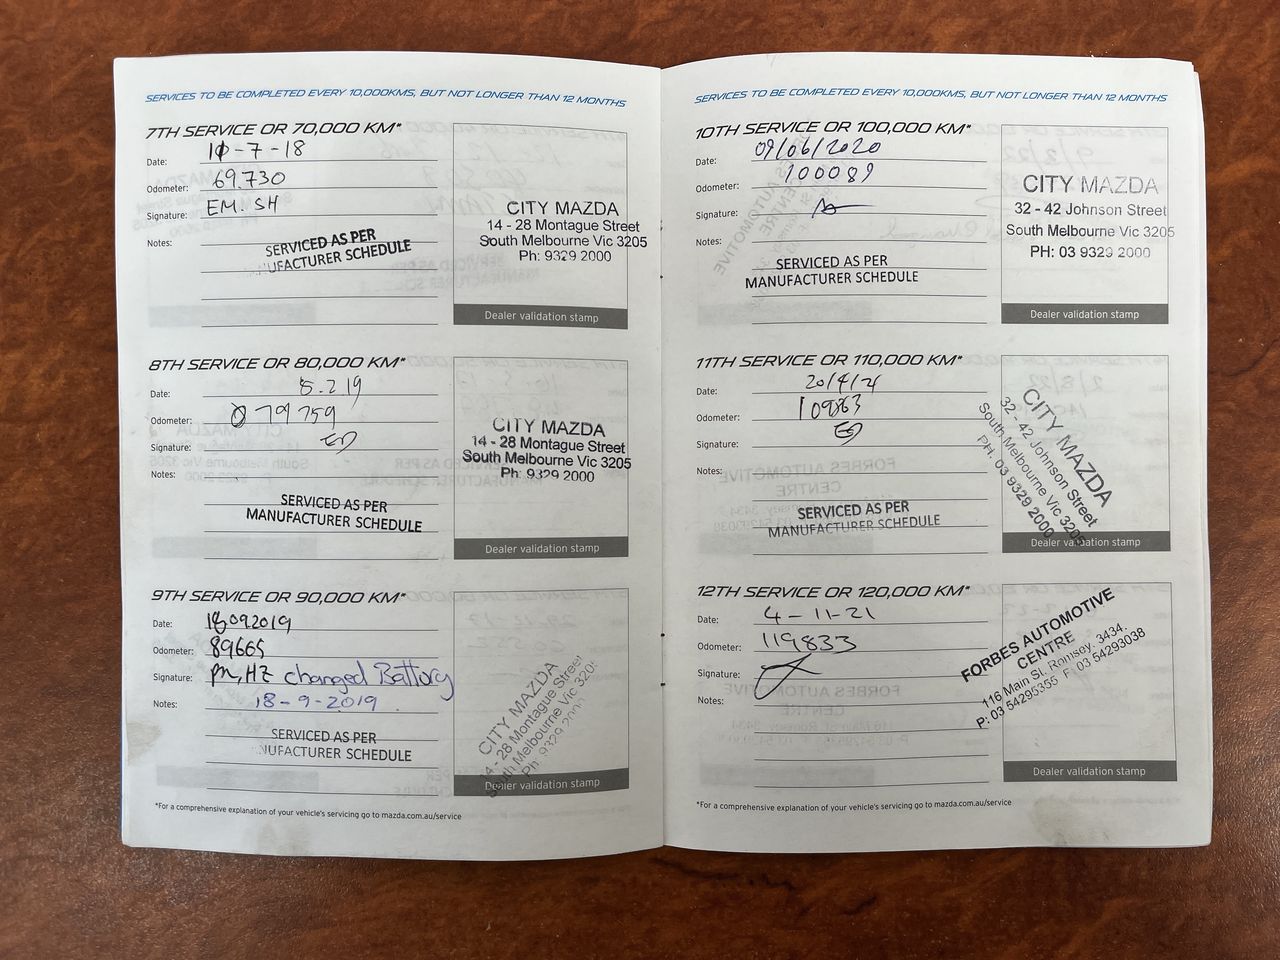 SERVICES TO BE COMPLETED EVERY 10,000KMS, BUT NOT LONGER THAN 12 MONTHS
7TH SERVICE OR 70,000 KM*
Date: 10-7-18
Odometer: 69,730
Signature: EM. SH
Notes:
SERVICED AS PER
MANUFACTURER SCHEDULE
CITY MAZDA
14 - 28 Montague Street
South Melbourne Vic 3205
Ph: 9329 2000
Dealer validation stamp
8TH SERVICE OR 80,000 KM*
Date: 5.2.19
Odometer: 079759
Signature:
Notes:
SERVICED AS PER
MANUFACTURER SCHEDULE
CITY MAZDA
14 - 28 Montague Street
South Melbourne Vic 3205
Ph: 9329 2000
Dealer validation stamp
9TH SERVICE OR 90,000 KM*
Date: 18.09.2019
Odometer: 89665
Signature: PM, HZ changed Battery
Notes: 18-9-2019
SERVICED AS PER
MANUFACTURER SCHEDULE
CITY MAZDA
14 - 28 Montague Street
South Melbourne Vic 3205
Ph: 9329 2000
Dealer validation stamp
*For a comprehensive explanation of your vehicle's servicing go to mazda.com.au/service
SERVICES TO BE COMPLETED EVERY 10,000KMS, BUT NOT LONGER THAN 12 MONTHS
10TH SERVICE OR 100,000 KM*
Date: 09/06/2020
Odometer: 100089
Signature:
Notes:
SERVICED AS PER
MANUFACTURER SCHEDULE
CITY MAZDA
32 - 42 Johnson Street
South Melbourne Vic 3205
PH: 03 9329 2000
Dealer validation stamp
11TH SERVICE OR 110,000 KM*
Date: 20/4/21
Odometer: 109863
Signature:
Notes:
SERVICED AS PER
MANUFACTURER SCHEDULE
CITY MAZDA
32 - 42 Johnson Street
South Melbourne Vic 3205
PH: 03 9329 2000
Dealer validation stamp
12TH SERVICE OR 120,000 KM*
Date: 4-11-21
Odometer: 119833
Signature:
Notes:
FORBES AUTOMOTIVE
CENTRE
116 Main St, Romsey, 3434.
P: 03 54295355 F: 03 54293038
Dealer validation stamp
*For a comprehensive explanation of your vehicle's servicing go to mazda.com.au/service